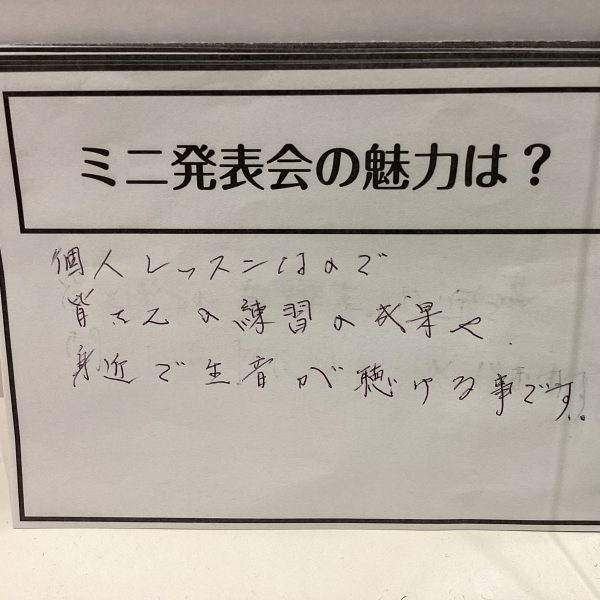 ミニ発表会の魅力は？
個人レッスンなので
皆さんの練習の成果や
身近で生音が聴ける事です。